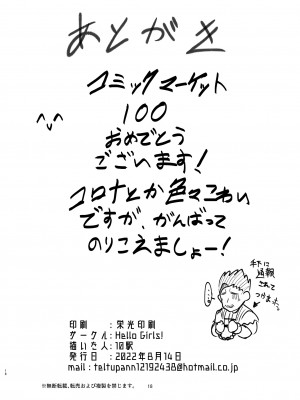 あとがき
コミックマーケット
100
おめでとう
ございます!
コロナとか色々こわい
ですが、がんばって
のりこえましょー!
手下に
通報
されて
つかまった。
印刷　：栄光印刷
サークル：Hello Girls!
描いた人：10駅
発行　：2022年8月14日
mail：teltupann12192438@hotmail.co.jp
※無断転載、転売および複製を禁じます。
18